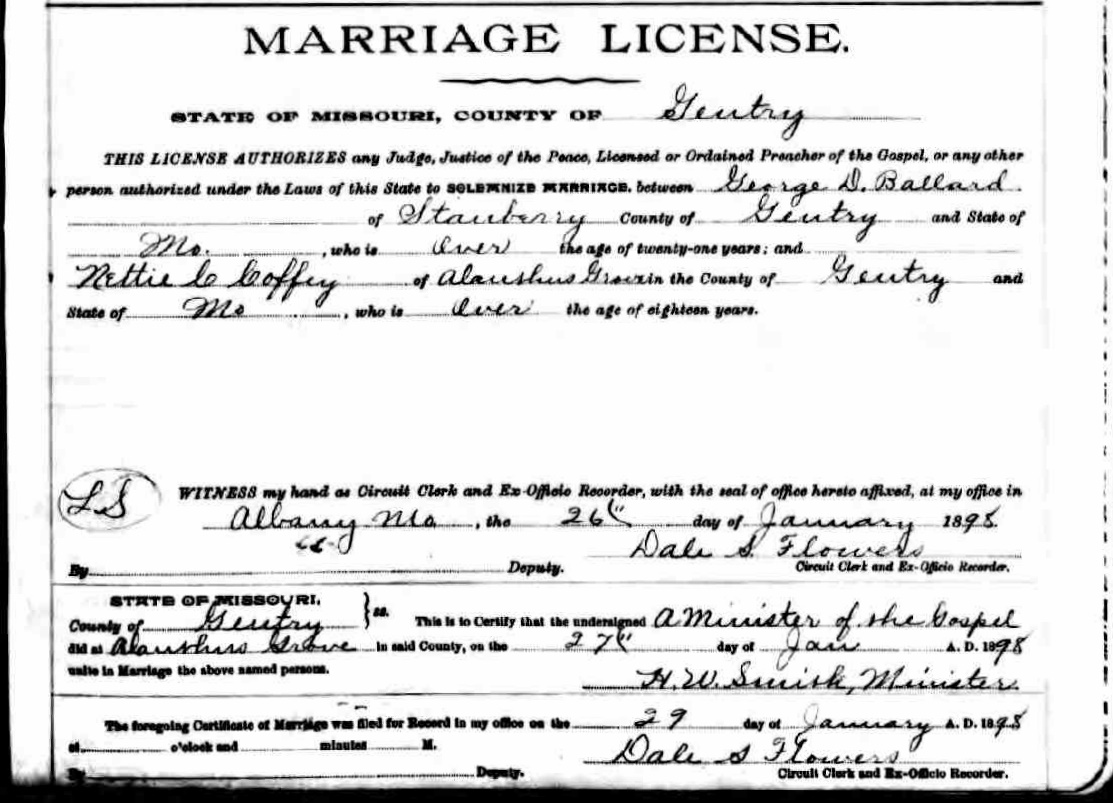 MARRIAGE LICENSE.
STATE OF MISSOURI, COUNTY OF Gentry
THIS LICENSE AUTHORIZES any Judge, Justice of the Peace, Licensed or Ordained Preacher of the Gospel, or any other
person authorized under the Laws of this State to SOLEMNIZE MARRIAGE, between George D. Ballard
of Stanberry County of Gentry and State of
Mo. , who is Over the age of twenty-one years; and
Nettie C Coffey of Alanthus Grove in the County of Gentry and
State of Mo , who is Over the age of eighteen years.
LS WITNESS my hand as Circuit Clerk and Ex-Officio Recorder, with the seal of office hereto affixed, at my office in
Albany Mo , the 26th day of January 1898
Dale S. Flowers
By Deputy. Circuit Clerk and Ex-Officio Recorder.
STATE OF MISSOURI,
County of Gentry } ss. This is to Certify that the undersigned A Minister of the Gospel
did at Alanthus Grove in said County, on the 27th day of Jan A. D. 1898
unite in Marriage the above named persons.
H. W. Smith, Minister.
The foregoing Certificate of Marriage was filed for Record in my office on the 29 day of January A. D. 1898
at o'clock and minutes M.
Dale S Flowers
By Deputy. Circuit Clerk and Ex-Officio Recorder.